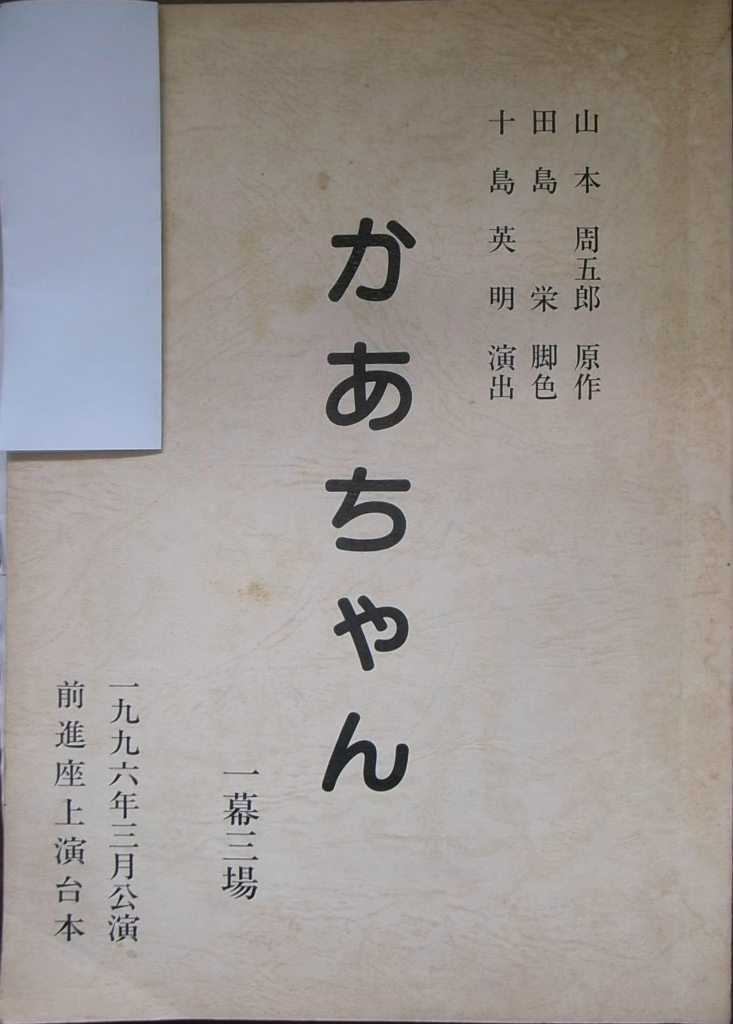 山本周五郎 原作
田島 栄 脚色
十島英明 演出
かあちゃん
一幕三場
一九九六年三月公演
前進座上演台本